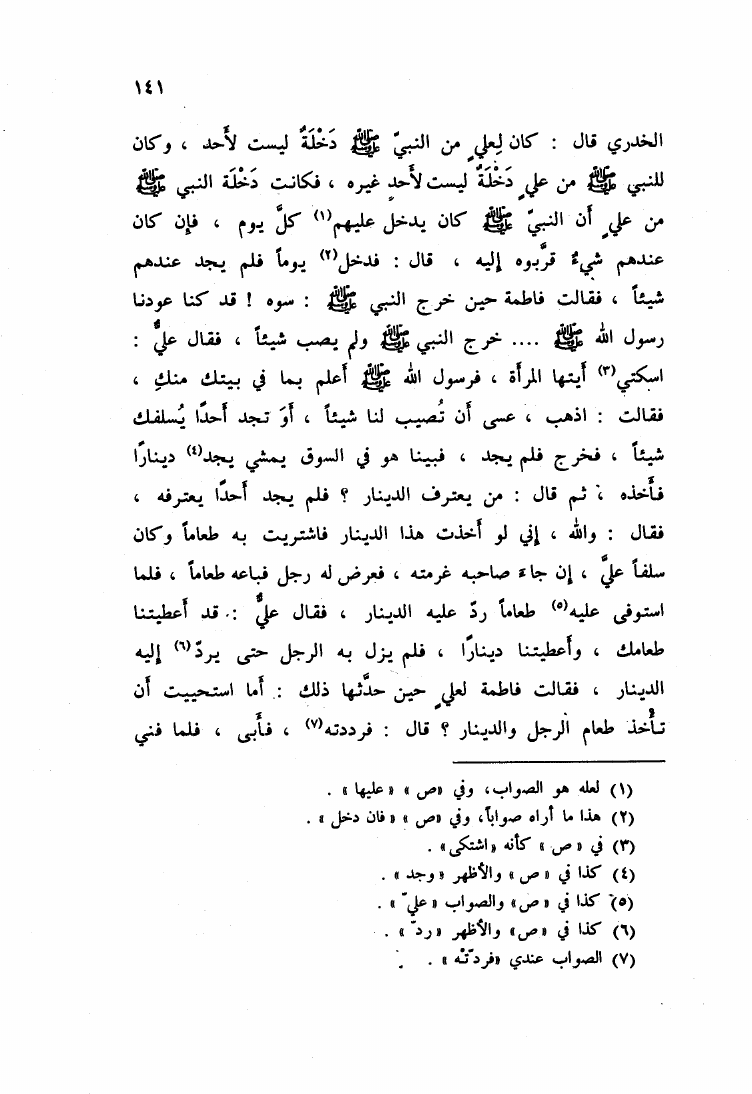 ١٤١
الخدري قال : كان لِعليٍ من النبيّ ﷺ دَخْلَةٌ ليست لأَحد ، وكان
للنبي ﷺ من عليٍ دَخْلَةٌ ليست لأَحدٍ غيره ، فكانت دَخْلَة النبي ﷺ
من عليٍ أَن النبيّ ﷺ كان يدخل عليهم(١) كلَّ يوم ، فإِن كان
عندهم شيءٌ قرَّبوه إليه ، قال : فدخل(٢) يوماً فلم يجد عندهم
شيئاً ، فقالت فاطمة حين خرج النبي ﷺ : سوه ! قد كنا عودنا
رسول الله ﷺ .... خرج النبي ﷺ ولم يصب شيئاً ، فقال عليٌّ :
اسكتي(٣) أَيتها المرأَة ، فرسول الله ﷺ أَعلم بما في بيتك منكِ ،
فقالت : اذهب ، عسى أَن تُصيب لنا شيئاً ، أَوَ تجد أَحدًا يُسلفك
شيئاً ، فخرج فلم يجد ، فبينا هو في السوق يمشي يجد(٤) دينارًا
فأَخذه ، ثم قال : من يعترف الدينار ؟ فلم يجد أَحدًا يعترفه ،
فقال : والله ، إني لو أَخذت هذا الدينار فاشتريت به طعاماً وكان
سلفاً عليَّ ، إن جاءَ صاحبه غرمته ، فعرض له رجل فباعه طعاماً ، فلما
استوفى عليه(٥) طعاماً ردّ عليه الدينار ، فقال عليٌّ : قد أَعطيتنا
طعامك ، وأَعطيتنا دينارًا ، فلم يزل به الرجل حتى يردّ(٦) إليه
الدينار ، فقالت فاطمة لعليٍ حين حدَّثها ذلك : أَما استحييت أَن
تأْخذ طعام الرجل والدينار ؟ قال : فرددته(٧) ، فأَبى ، فلما فني
(١) لعله هو الصواب، وفي «ص» «عليها» .
(٢) هذا ما أراه صواباً، وفي «ص» «فان دخل» .
(٣) في «ص» كأنه «اشتكى» .
(٤) كذا في «ص» والأظهر «وجد» .
(٥) كذا في «ص» والصواب «عليّ» .
(٦) كذا في «ص» والأظهر «ردّ» .
(٧) الصواب عندي «فردّتْه» .